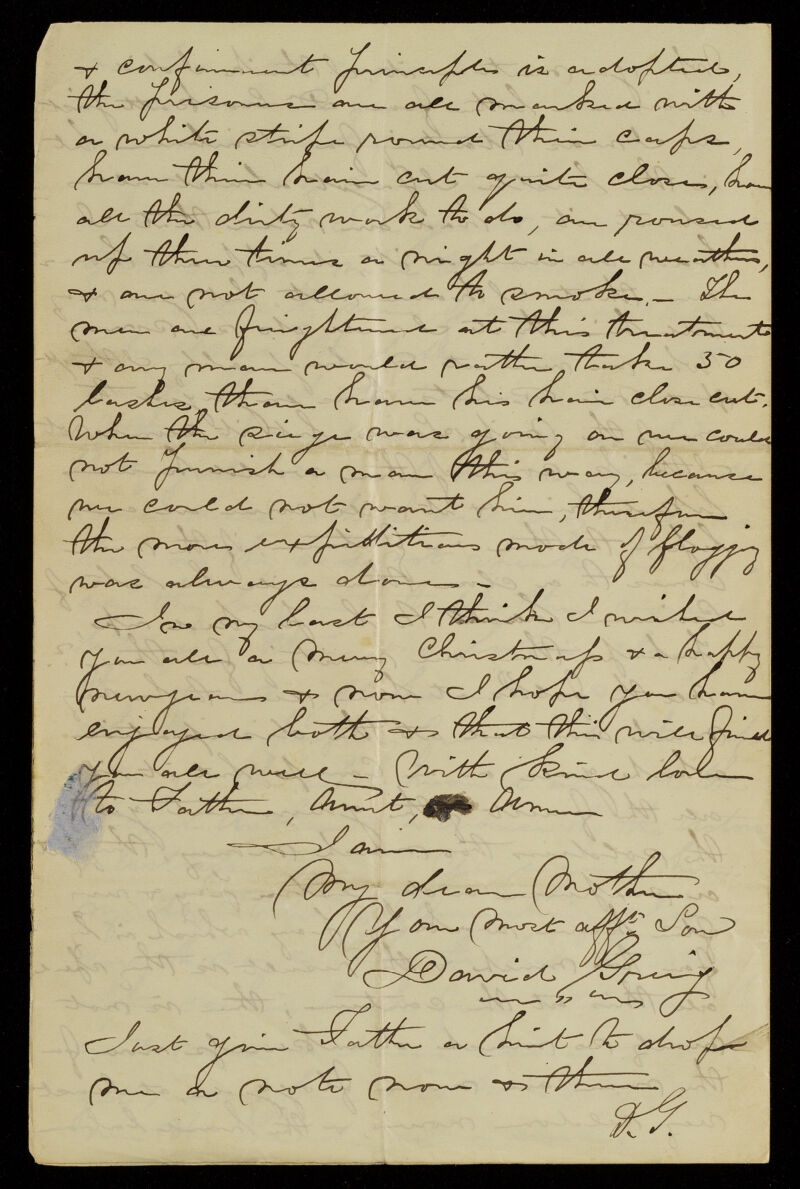 & confinement principle is adopted,
the prisoners are all marked with
a white stripe round their caps,
have their hair cut quite close, have
all the dirty work to do, are roused
up three times a night in all weathers,
& are not allowed to smoke. - The
men are frightened at this treatment
& any man would rather take 50
lashes than have his hair close cut.
When the siege was going on we could
not punish a man this way, because
we could not want him, therefore
the more expidititious mode of flogging
was always done -
In my last I think I wished
you all a merry Christmas & a happy
newyear & now I hope you have
enjoyed both & that this will find
you all well - With kind love
to Father, Aunt, Anne
I am
My dear Mother
Your most afft Son
David Greig
Just give Father a hint to drop
me a note now & then
D. G.